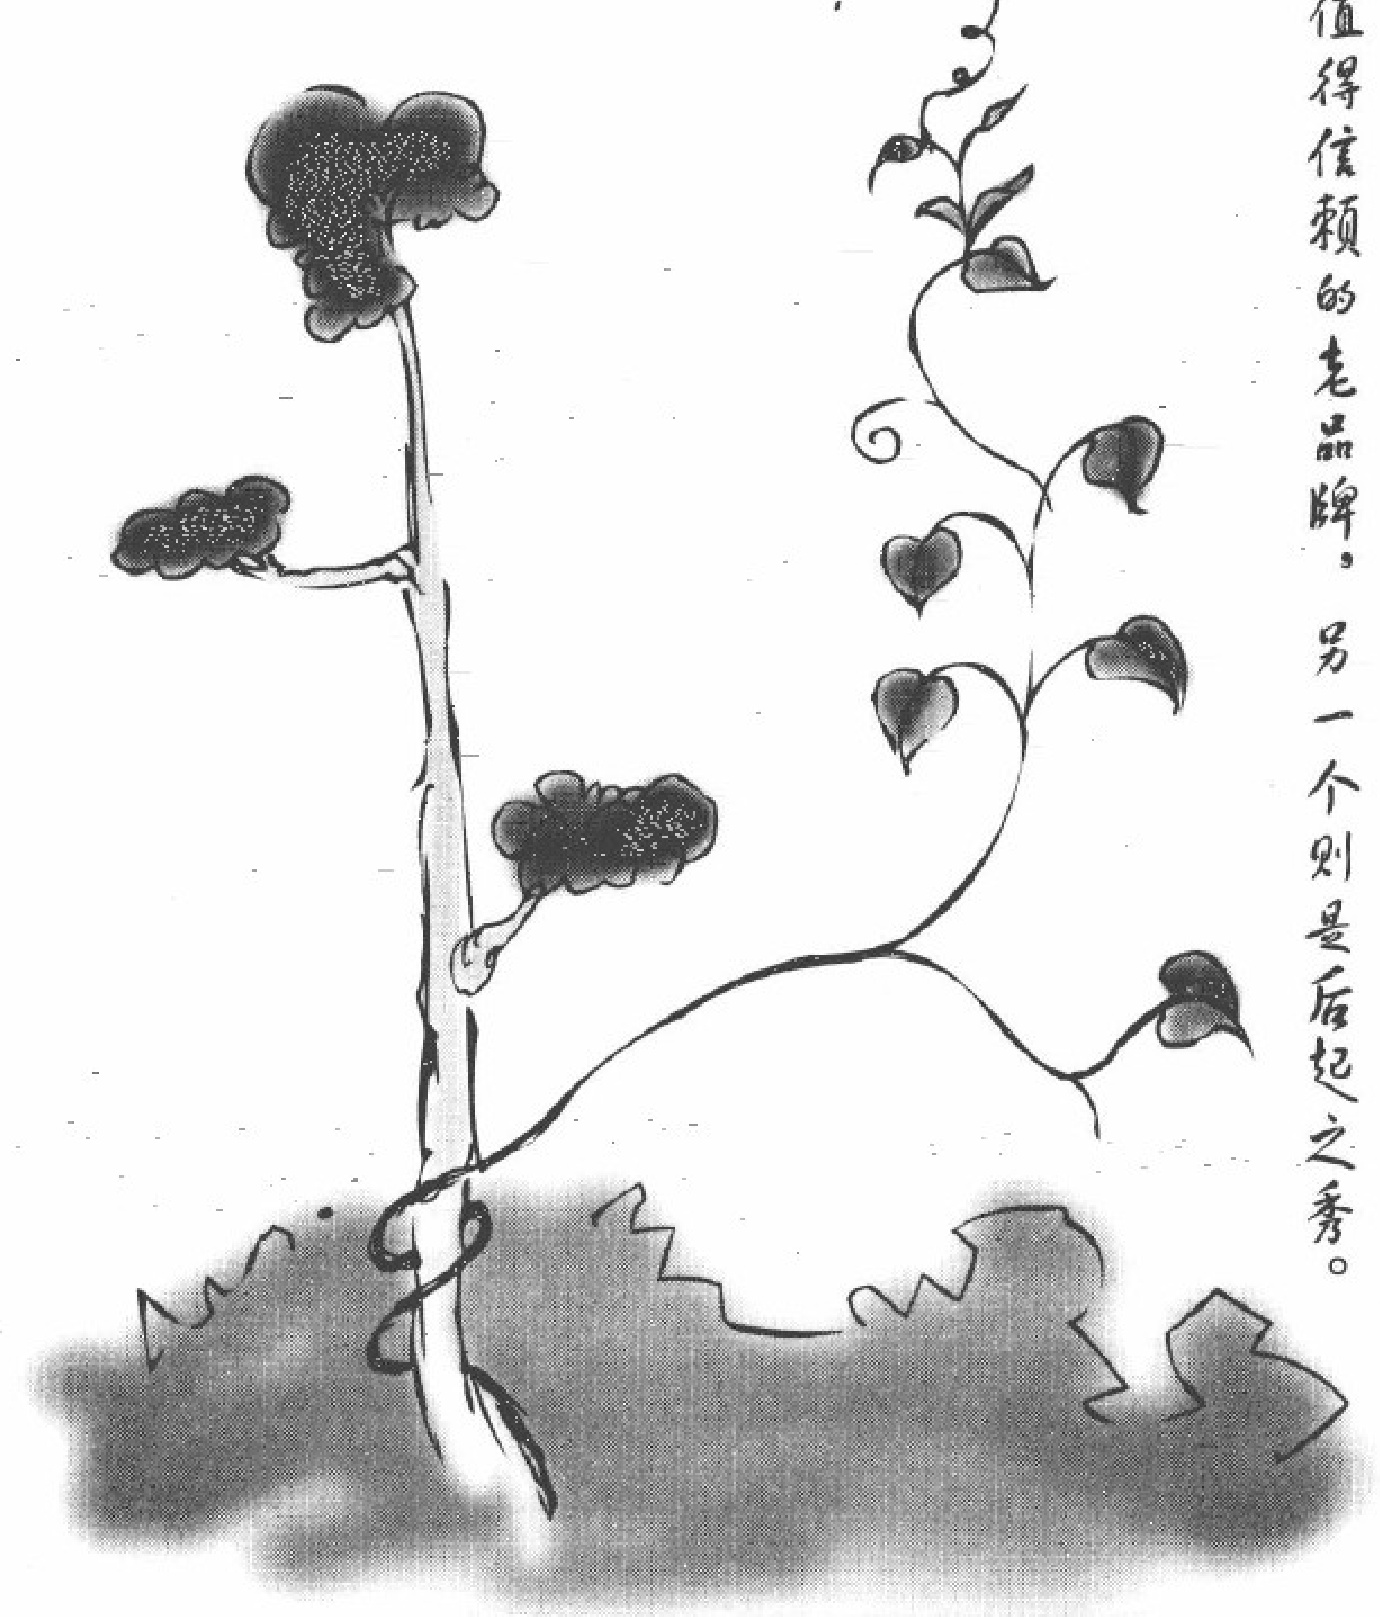 值得信赖的老品牌。另一个则是后起之秀。